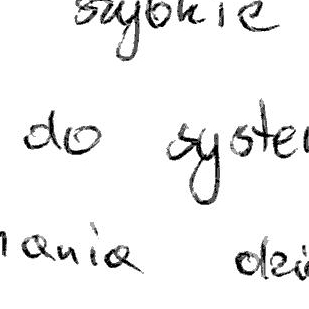 szybkie
do syste
ania dzi